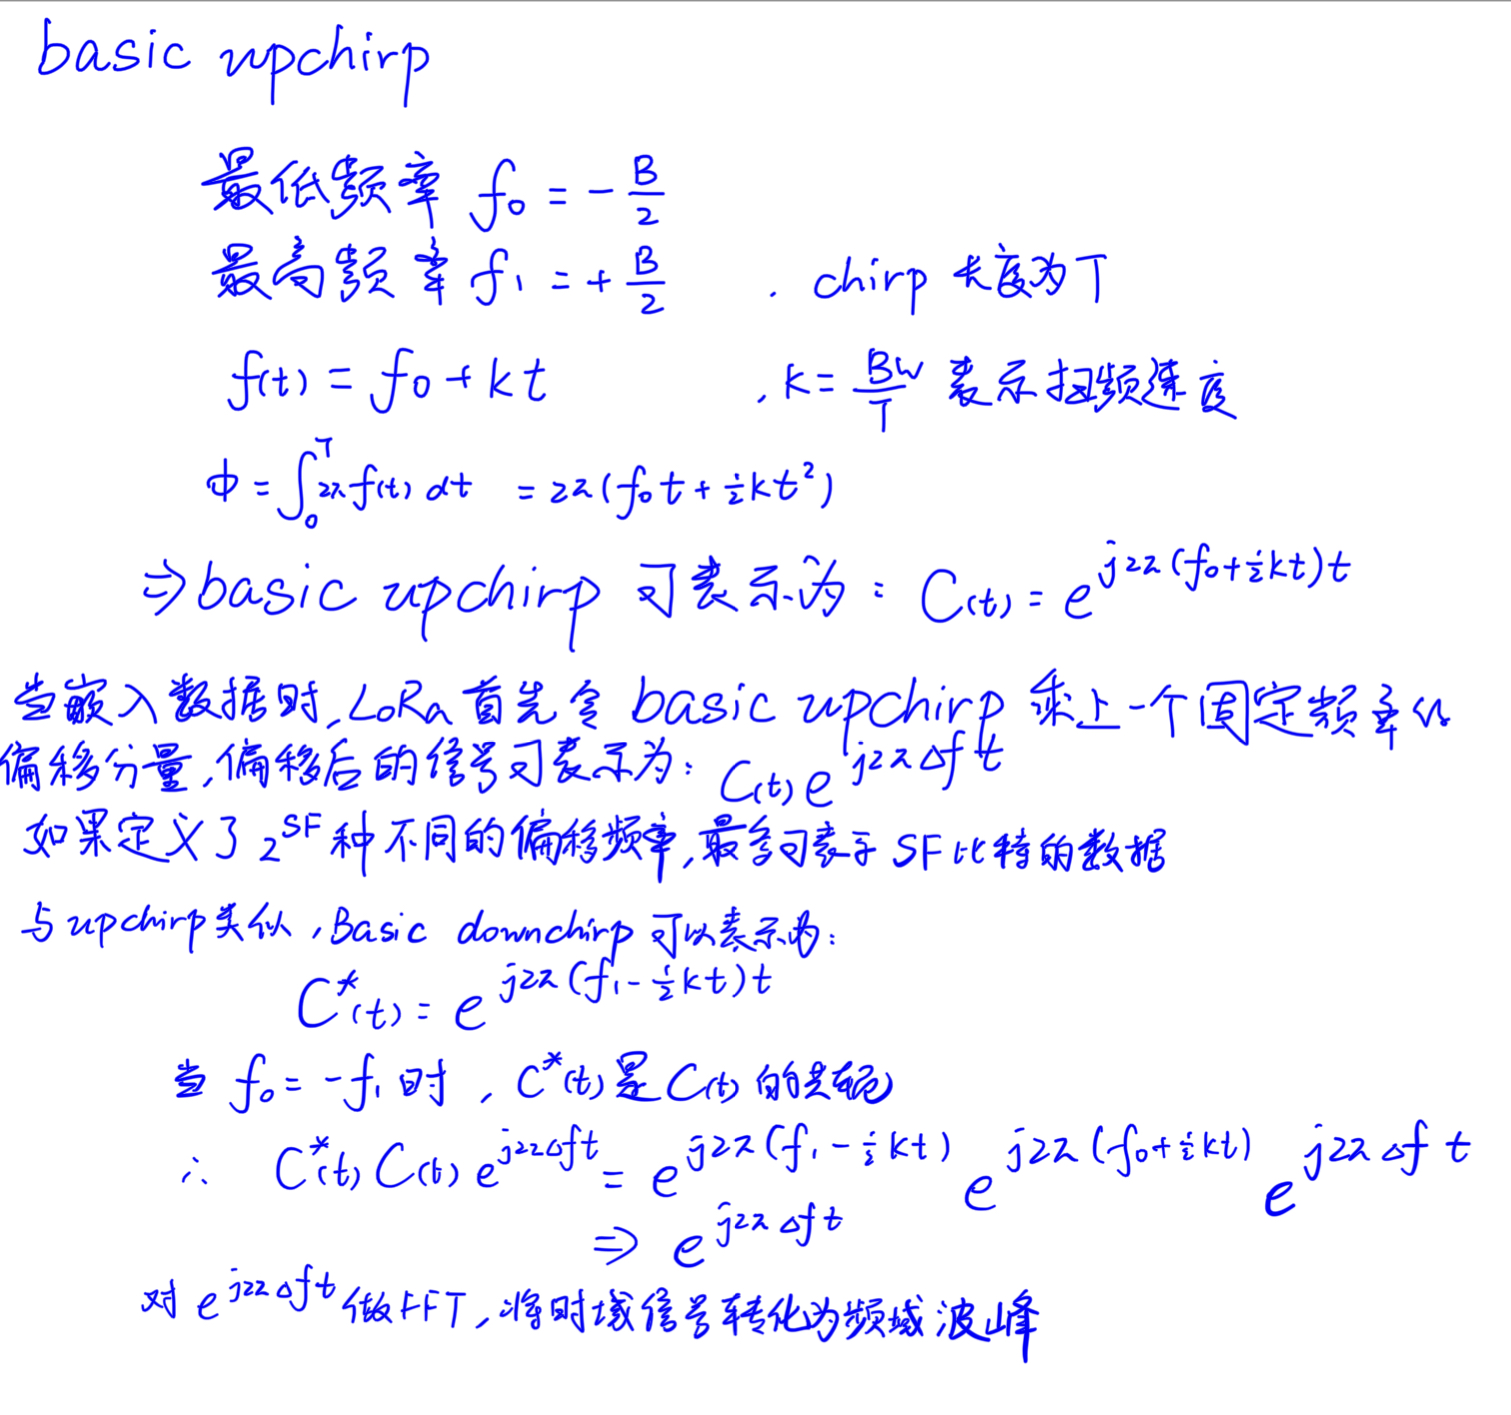 basic upchirp
最低频率 f₀ = -B/2
最高频率 f₁ = +B/2 . chirp 长度为T
f(t) = f₀ + kt , k = BW/T 表示扫频速度
Φ = ∫₀ᵀ 2π f(t) dt = 2π(f₀t + ½kt²)
⇒ basic upchirp 可表示为: C(t) = e^{j2π(f₀+½kt)t}
当嵌入数据时,LoRa首先令 basic upchirp 乘上一个固定频率的
偏移分量,偏移后的信号可表示为: C(t)e^{j2πΔft}
如果定义了2^{SF}种不同的偏移频率,最多可表示SF比特的数据
与upchirp类似,Basic downchirp 可以表示为:
C*(t) = e^{j2π(f₁-½kt)t}
当 f₀ = -f₁时, C*(t)是C(t)的共轭
∴ C*(t)C(t)e^{j2πΔft} = e^{j2π(f₁-½kt)} e^{j2π(f₀+½kt)} e^{j2πΔft}
⇒ e^{j2πΔft}
对e^{j2πΔft}做FFT,将时域信号转化为频域波峰